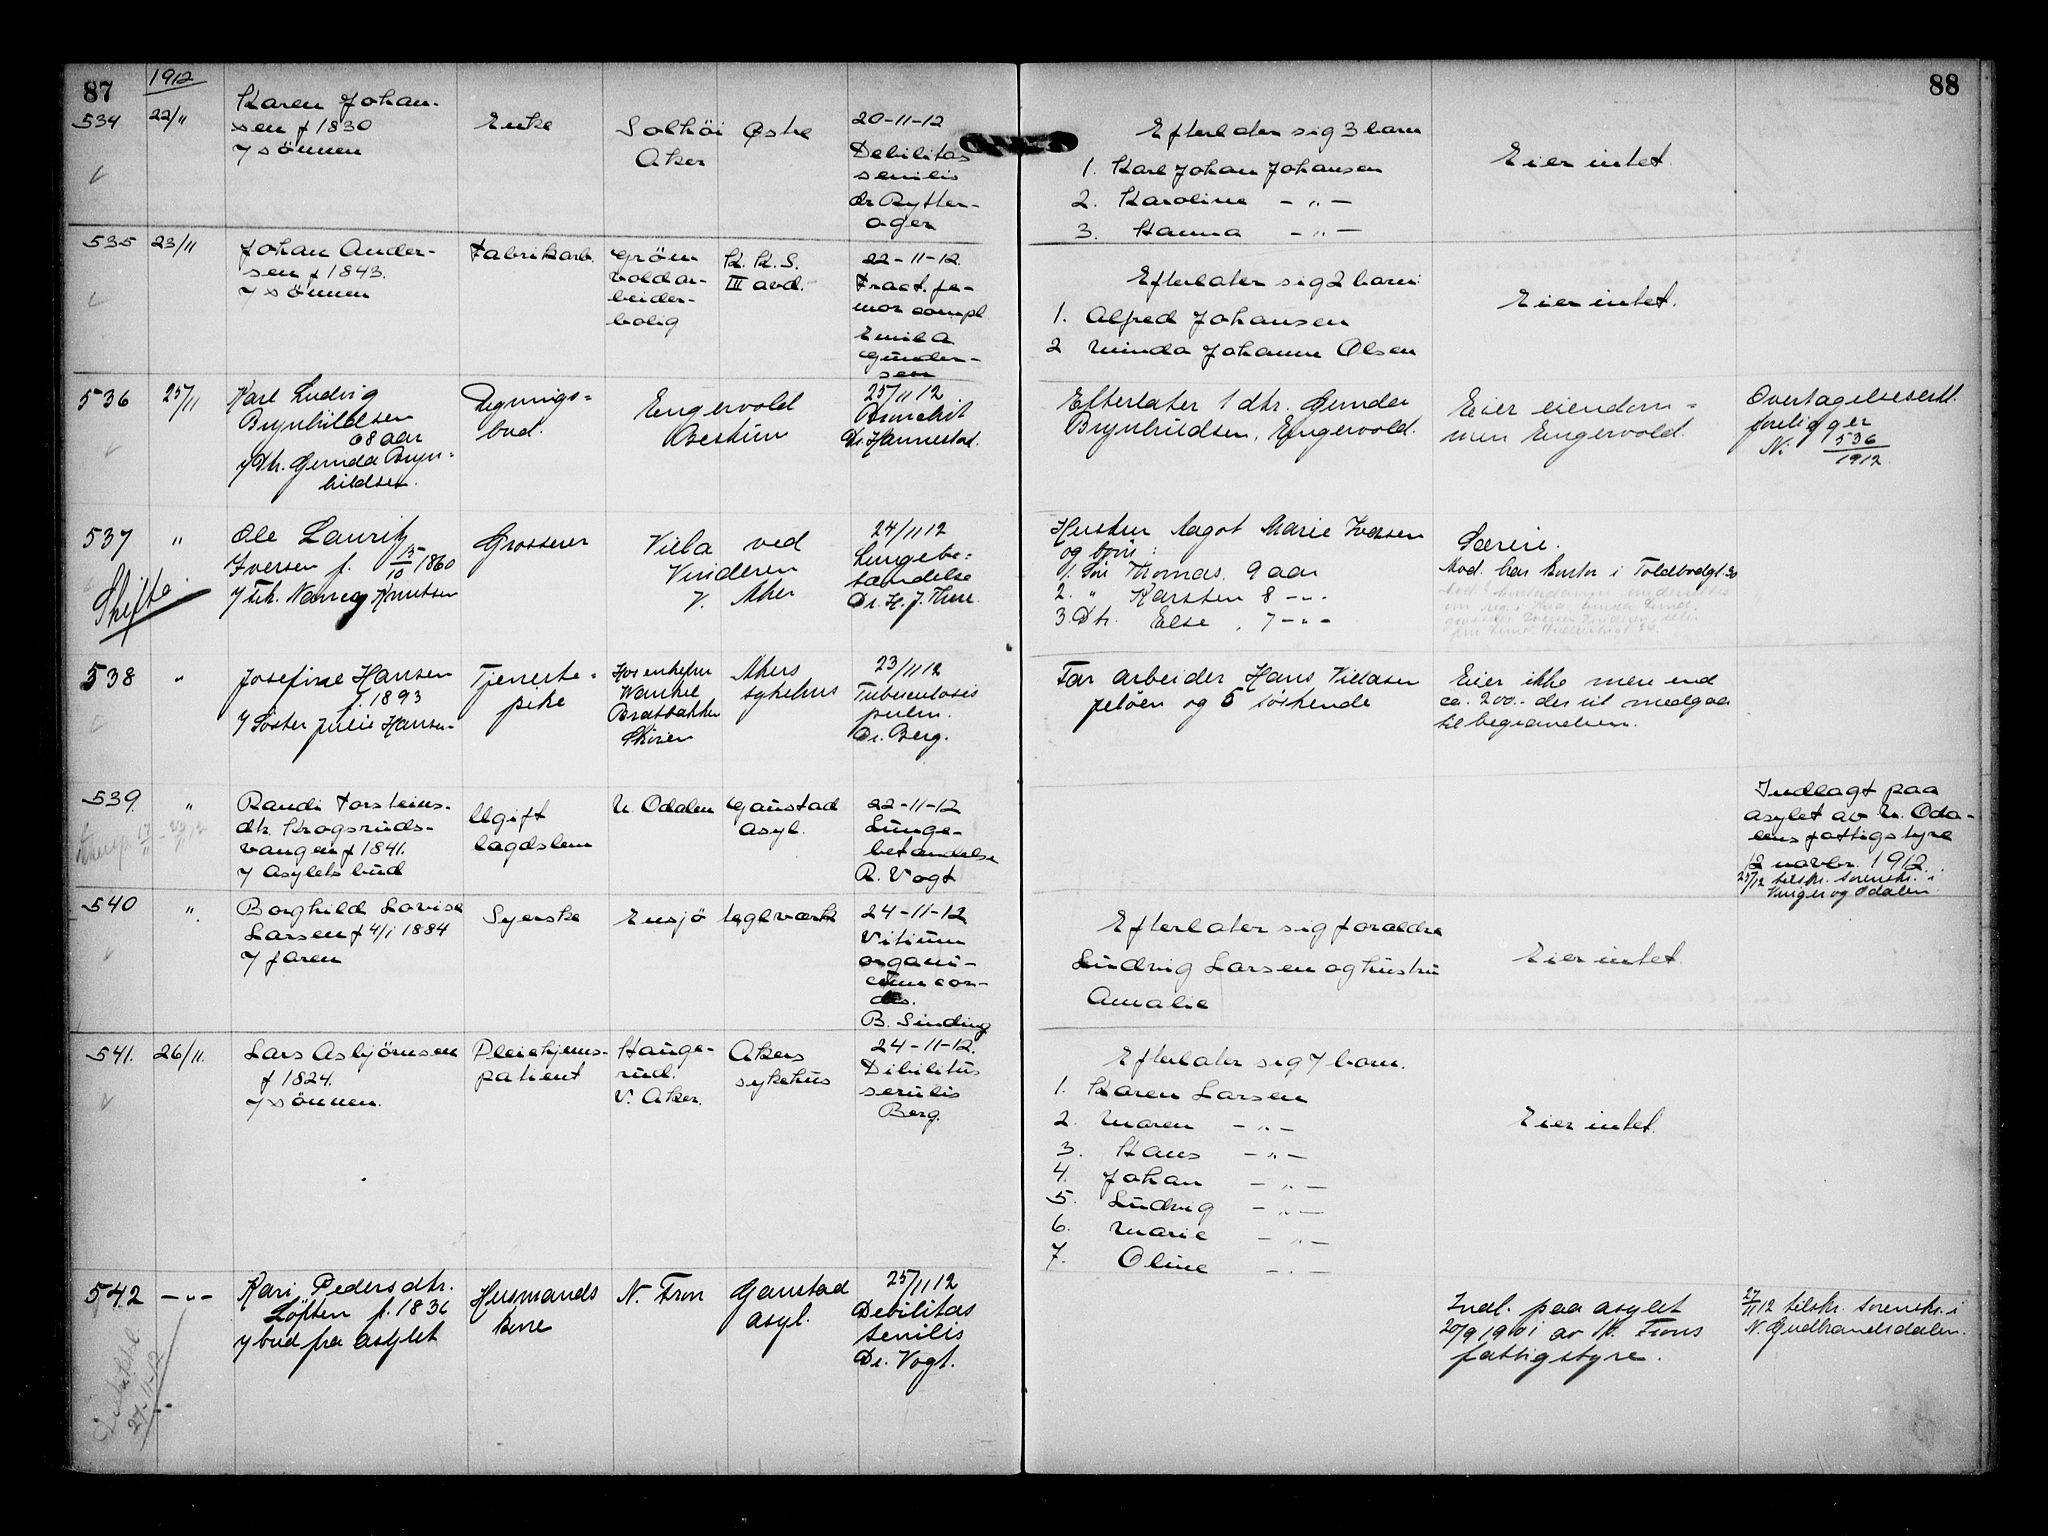 87
1912
534
22/11
Karen Johan-
sen f 1830
v sönnen
Enke
Solhöi Östre
Aker
20-11-12
Debilitas
senilis
dr Rytter-
ager
535
23/11
Johan Ander-
sen f 1843.
v sönnen
Fabrikarb.
Grön-
vold ar-
beider-
bolig
K. K. S.
III avd.
22-11-12.
Fract. fe-
mor compl
Emil A
Gunder-
sen
536
25/11
Karl Ludvig
Brynhildsen
68 aar
v Dtr. Gemda Bryn-
hildsen.
Bygnings-
bud.
Engervold
Bestum
25/11 12
Bronchit
Dr. Hannestad.
537
"
Ole Lauritz
Iversen f. 15/10 1860
v Frk. Nancy Knutsen
Skifte
Grosserer
Villa ved
Vinderen
V. Aker
24/11 12
Lungebe-
tændelse
Dr. H. J.
538
"
Josefine Hansen
f. 1893
v Söster Julie Hansen-
Tjeneste-
pike
Hos enkefru
Bratbakken
Sköien
Akers
sykehus
23/11 12
Tuberculosis
pulm.
Dr. Berg.
539.
"
Randi Torsteins-
dtr. Krogsruds-
vangen f 1841.
v Asylets bud
Ugift
lagdslem
N. Odalen
Gaustad
Asyl.
22-11-12
Lunge-
betændelse
R. Vogt
540
"
Borghild Lovise
Larsen f 4/1 1884
v faren
Syerske
Ensjö teglværk
24-11-12
Vitium
organi-
cum cor-
dis.
B. Sinding
541.
26/11.
Lars Asbjörnsen
f 1824.
v sönnen.
Pleiehjems-
patient
Hauge-
rud.
V. Aker.
Akers
sykehus
24-11-12.
Dibilitus
senilis
Berg.
542
-"-
Kari Pedersdtr.
Löften f. 1836
v bud fra asylet
27-11-12
Husmands
kone
N. Fron
Gaustad
asyl.
25/11 12
Debilitas
senilis
Dr. Vogt.
88
Efterlater sig 3 barn
1. Karl Johan Johansen
2. Karoline -"-
3. Hanna -"-
Eier intet.
Efterlater sig 2 barn:
1. Alfred Johansen
2 Minda Johanne Olsen
Eier intet.
Efterlater 1 dtr. Gemda
Brynhildsen, Engervold.
Eier eiendom-
men Engervold.
Overtagelseserkl.
foreligger
N: 536
1912.
Hustru Aagot Marie Iversen
og börn:
1. Sön Thomas, 9 aar
2. " Karsten 8 -"-
3. Dtr. Else, 7 -"-
Særeie.
Avd. har kontor i Toldbodgt. 30
Far arbeider Hans Hansen
Jelöen og 5 söskende
Eier ikke mere end
ca. 200.- der vil medgaa
til begravelsen.
Indlagt paa
asylet av N. Oda-
lens fattigstyre
12 novbr. 1912.
27/12 tilskr. sorenskr. i
Vinger og Odalen.
Efterlater sig forældre
Ludvig Larsen og hustru
Amalie
Eier intet.
Efterlater sig 7 barn.
1. Karen Larsen
2. Maren -"-
3. Hans -"-
4. Johan -"-
5. Ludvig -"-
6. Marie -"-
7. Oline -"-
Eier intet.
Indl. paa asylet
20/9 1901 av N. Frons
fattigstyre.
27/11 12 tilskr. sorenskr. i
N. Gudbrandsdalen.